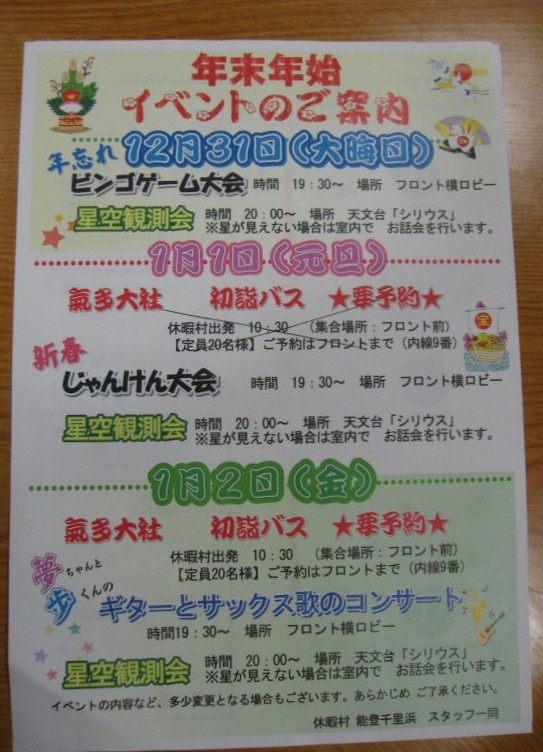 年末年始
イベントのご案内
年忘れ 12月31日(大晦日)
ビンゴゲーム大会 時間 19:30~ 場所 フロント横ロビー
星空観測会 時間 20:00~ 場所 天文台「シリウス」
※星が見えない場合は室内で お話会を行います。
1月1日(元旦)
氣多大社 初詣バス ★要予約★
休暇村出発 10:30 (集合場所:フロント前)
【定員20名様】ご予約はフロントまで(内線9番)
新春
じゃんけん大会 時間 19:30~ 場所 フロント横ロビー
星空観測会 時間 20:00~ 場所 天文台「シリウス」
※星が見えない場合は室内で お話会を行います。
1月2日(金)
氣多大社 初詣バス ★要予約★
休暇村出発 10:30 (集合場所:フロント前)
【定員20名様】ご予約はフロントまで(内線9番)
夢ちゃんと
歩くんの
ギターとサックス歌のコンサート
時間19:30~ 場所 フロント横ロビー
星空観測会 時間 20:00~ 場所 天文台「シリウス」
※星が見えない場合は室内で お話会を行います。
イベントの内容など、多少変更となる場合もございます。あらかじめ ご了承ください。
休暇村 能登千里浜 スタッフ一同
宝